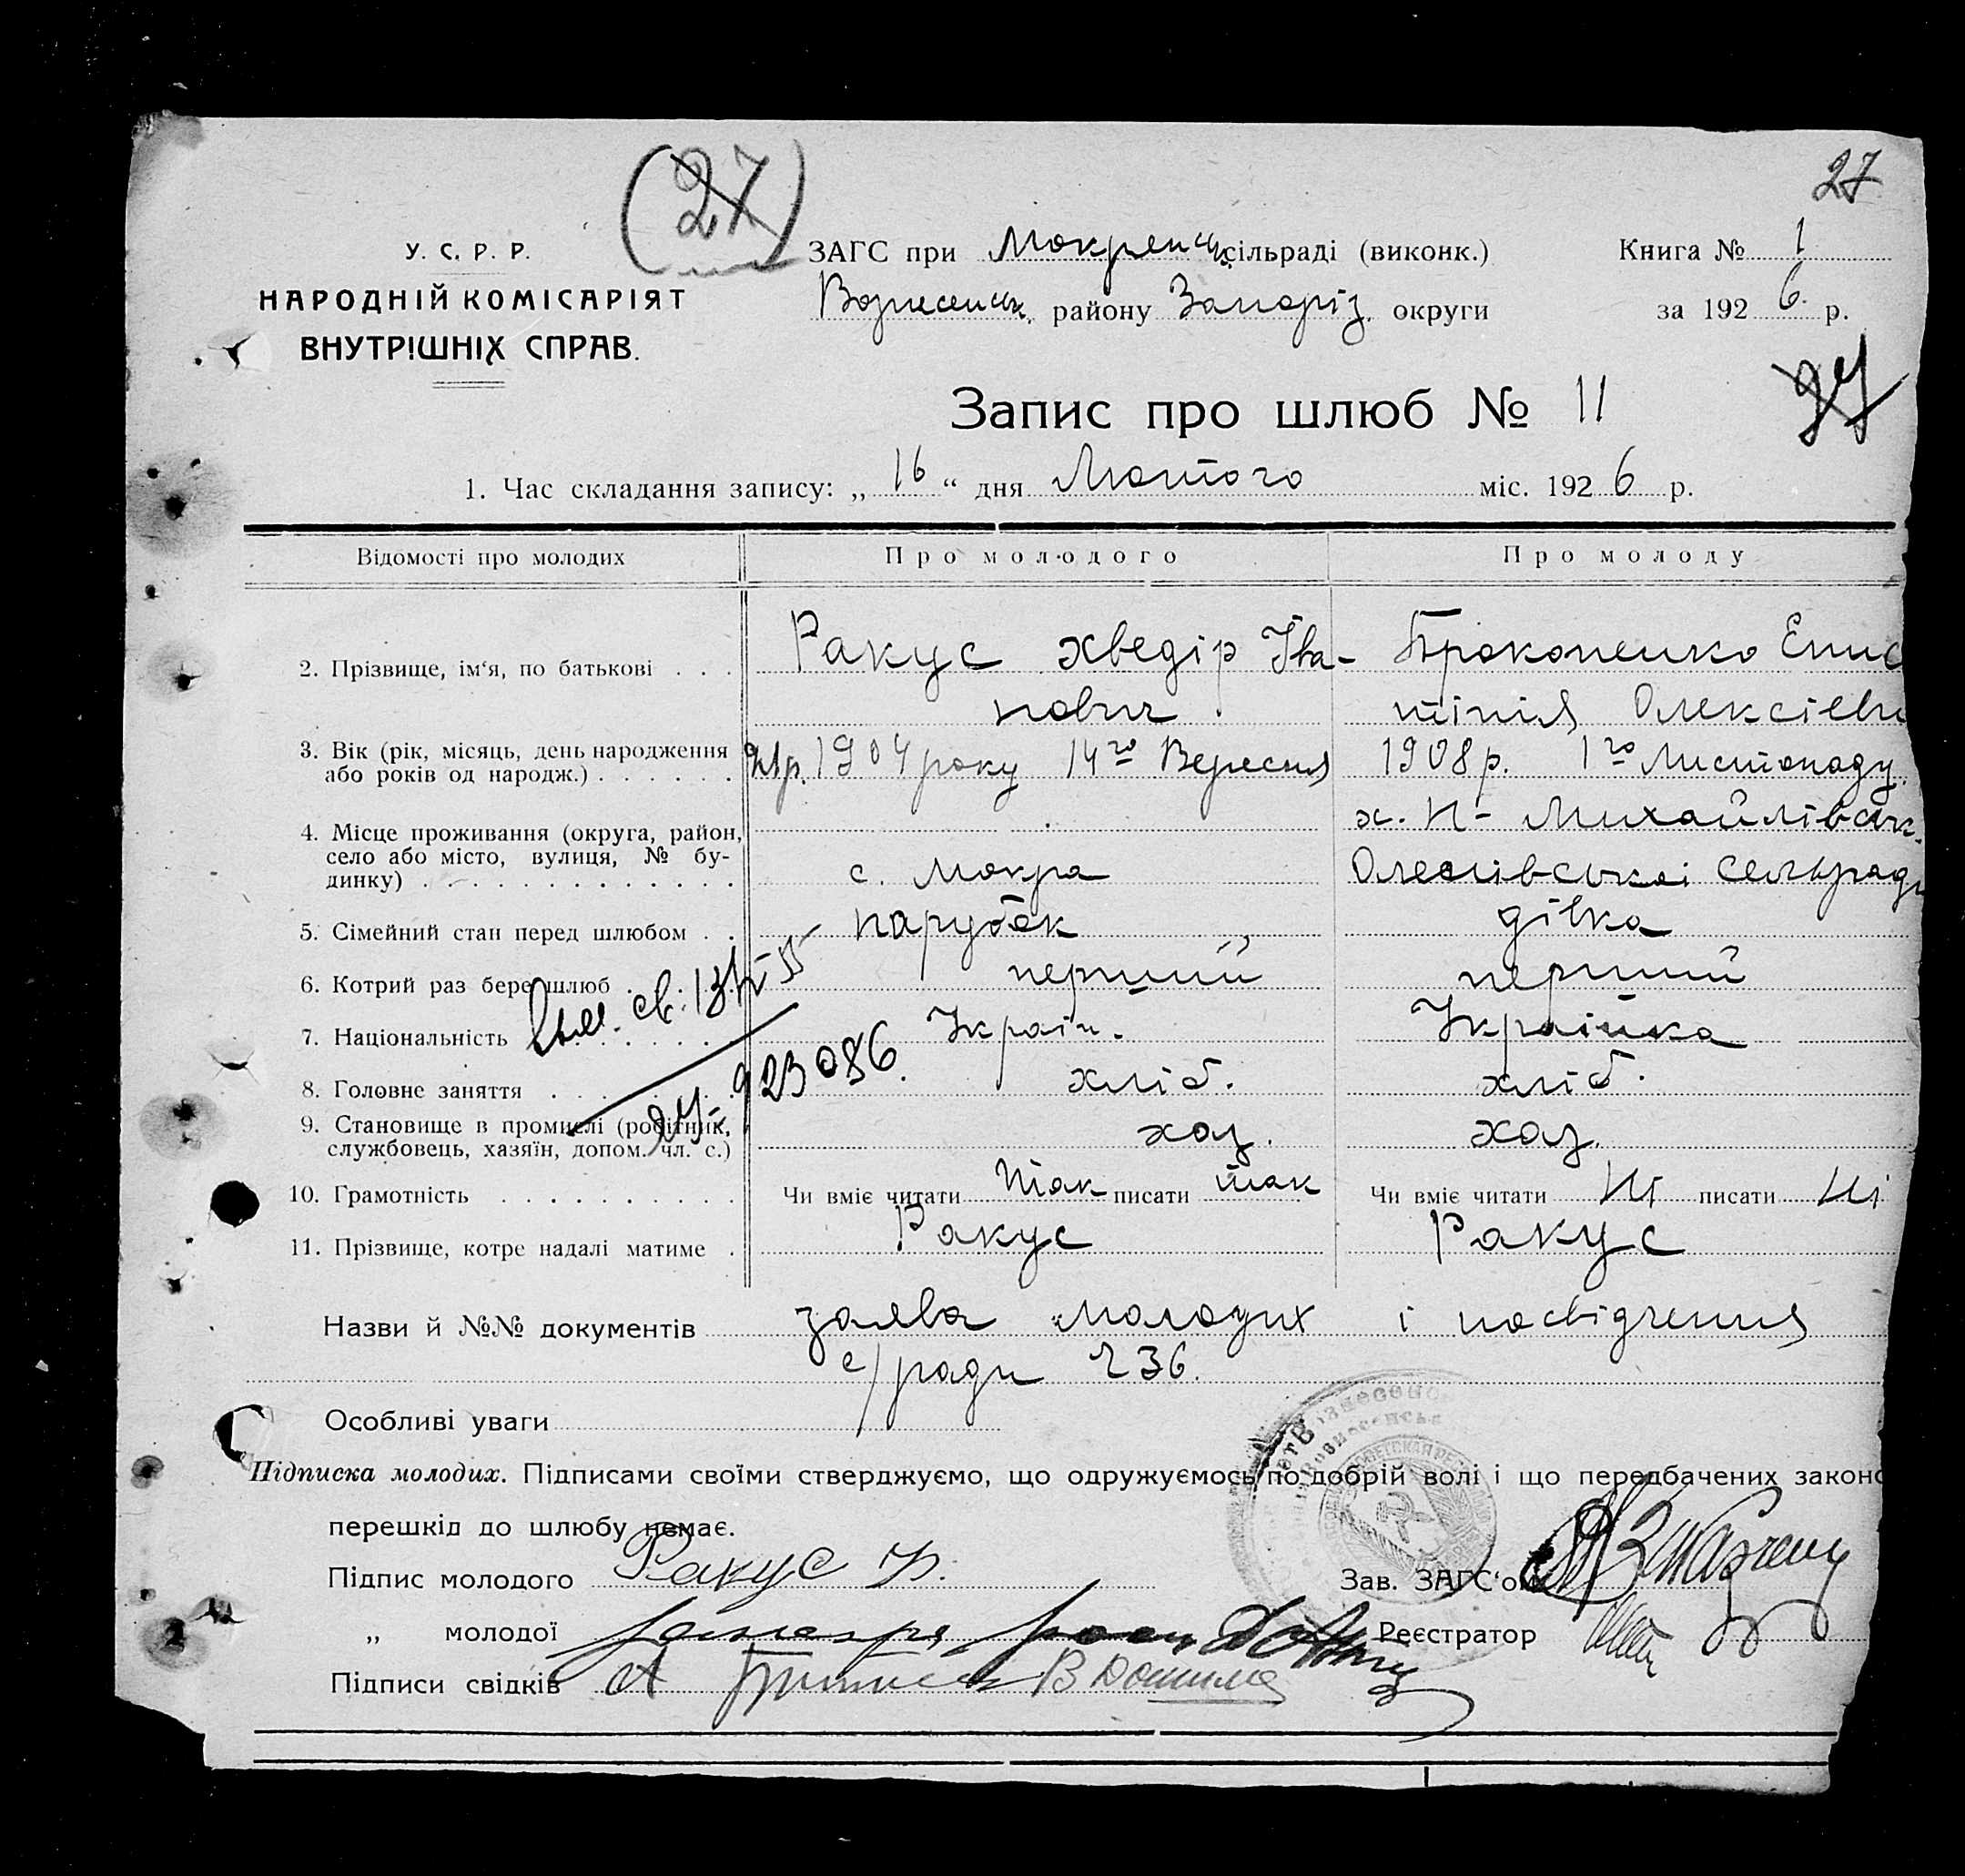 27
(27)
У. С. Р. Р.
НАРОДНІЙ КОМІСАРІЯТ
ВНУТРІШНІХ СПРАВ.
ЗАГС при Мокрянськ. сільраді (виконк.)
Книга № 1
Вознесенськ. району Запоріз. округи
за 1926 р.
Запис про шлюб № 11
27
1. Час складання запису: „16“ дня Лютого міс. 1926 р.
Відомості про молодих
Про молодого
Про молоду
2. Прізвище, ім‘я, по батькові . . .
Ракус Хведір Іва-
нович
Прокопенко Епис
тімія Олексієвн
3. Вік (рік, місяць, день народження
або років од народж.) . . . . . .
21р. 1904 року 14го Вересня
1908 р. 1го Листопаду
4. Місце проживання (округа, район,
село або місто, вулиця, № бу-
динку) . . . . . . . . . . . . .
с. Мокра
х. Н-Михайлівськ.
сельради
5. Сімейний стан перед шлюбом . .
парубок
дівка
6. Котрий раз бере шлюб . . . .
перший
перший
7. Національність . . . . . .
Україн.
Українка
св. 13/V-55
923086.
8. Головне заняття . . . . . .
хліб.
хліб.
9. Становище в промислі (робітник,
службовець, хазяїн, допом. чл. с.)
хаз.
хаз.
10. Грамотність . . . . . . . . . .
Чи вміє читати так писати так
Чи вміє читати ні писати ні
11. Прізвище, котре надалі матиме .
Ракус
Ракус
Назви й №№ документів заява молодих і посвідчення
с/ради 236.
Особливі уваги
Підписка молодих. Підписами своїми стверджуємо, що одружуємось по добрій волі і що передбачених законо
перешкід до шлюбу немає.
Підпис молодого Ракус Ф.
Зав. ЗАГС‘ом
„ молодої
Реєстратор
Підписи свідків